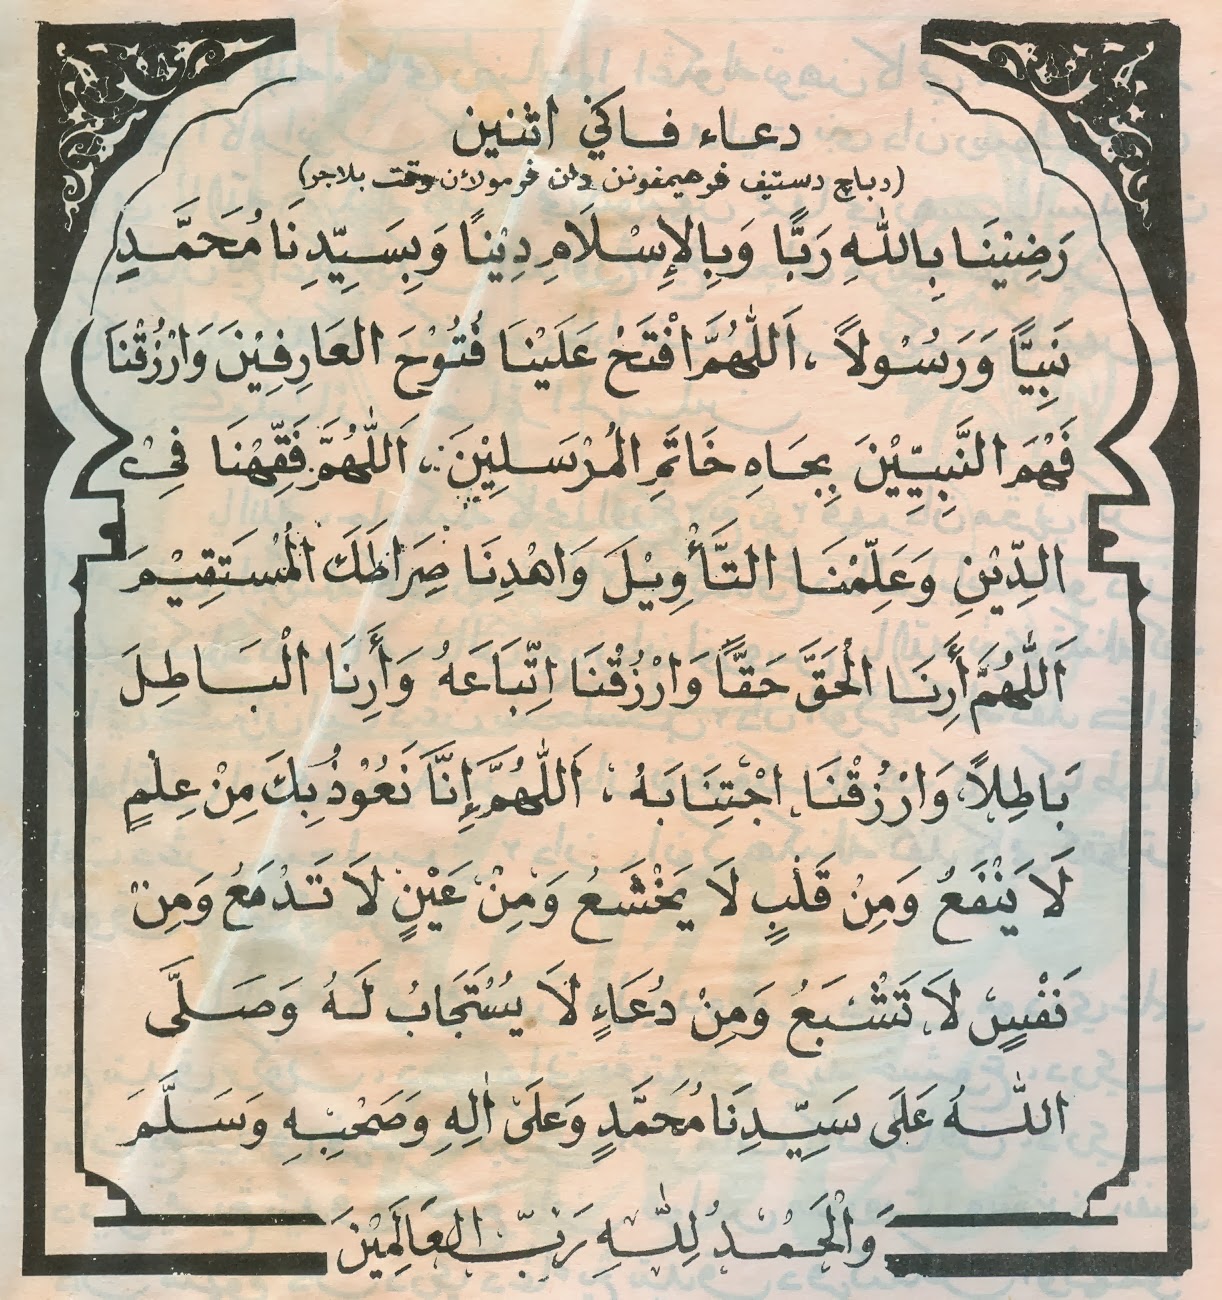 دعاء ڤاکي اثنين
(دباچ دستيڤ ڤرهيمڤونن دان ڤرمولاءن وقت بلاجر)
رَضِيْنَا بِاللهِ رَبًّا وَبِالإِسْلَامِ دِيْنًا وَبِسَيِّدِنَا مُحَمَّدٍ
نَبِيًّا وَرَسُوْلاً ، اَللّٰهُمَّ افْتَحْ عَلَيْنَا فُتُوْحَ العَارِفِيْنَ وَارْزُقْنَا
فَهْمَ النَّبِيِّيْنَ بِجَاهِ خَاتَمِ المُرْسَلِيْنَ ، اَللّٰهُمَّ فَقِّهْنَا فِيْ
الدِّيْنِ وَعَلِّمْنَا التَّأْوِيْلَ وَاهْدِنَا صِرَاطَكَ الْمُسْتَقِيْمَ
اَللّٰهُمَّ أَرِنَا الْحَقَّ حَقًّا وَارْزُقْنَا اتِّبَاعَهُ وَأَرِنَا الْبَاطِلَ
بَاطِلاً، وَارْزُقْنَا اجْتِنَابَهُ ، اَللّٰهُمَّ إِنَّا نَعُوْذُ بِكَ مِنْ عِلْمٍ
لَا يَنْفَعُ وَمِنْ قَلْبٍ لَا يَخْشَعُ وَمِنْ عَيْنٍ لَا تَدْمَعُ وَمِنْ
نَفْسٍ لَا تَشْبَعُ وَمِنْ دُعَاءٍ لَا يُسْتَجَابُ لَهُ وَصَلَّى
اللهُ عَلَى سَيِّدِنَا مُحَمَّدٍ وَعَلَىٰ اٰلِهِ وَصَحْبِهِ وَسَلَّمَ
وَالْحَمْدُ لِلّٰهِ رَبِّ العَالَمِيْنَ